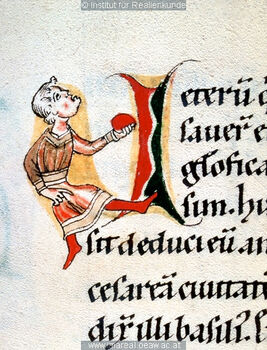 © Institut für Realienkunde
U eterū d
sauer e
glofica
sum. hu
sit deduci eū an
cesareā ciuitatē
dix illi basilis.
www.imareal.oeaw.ac.at